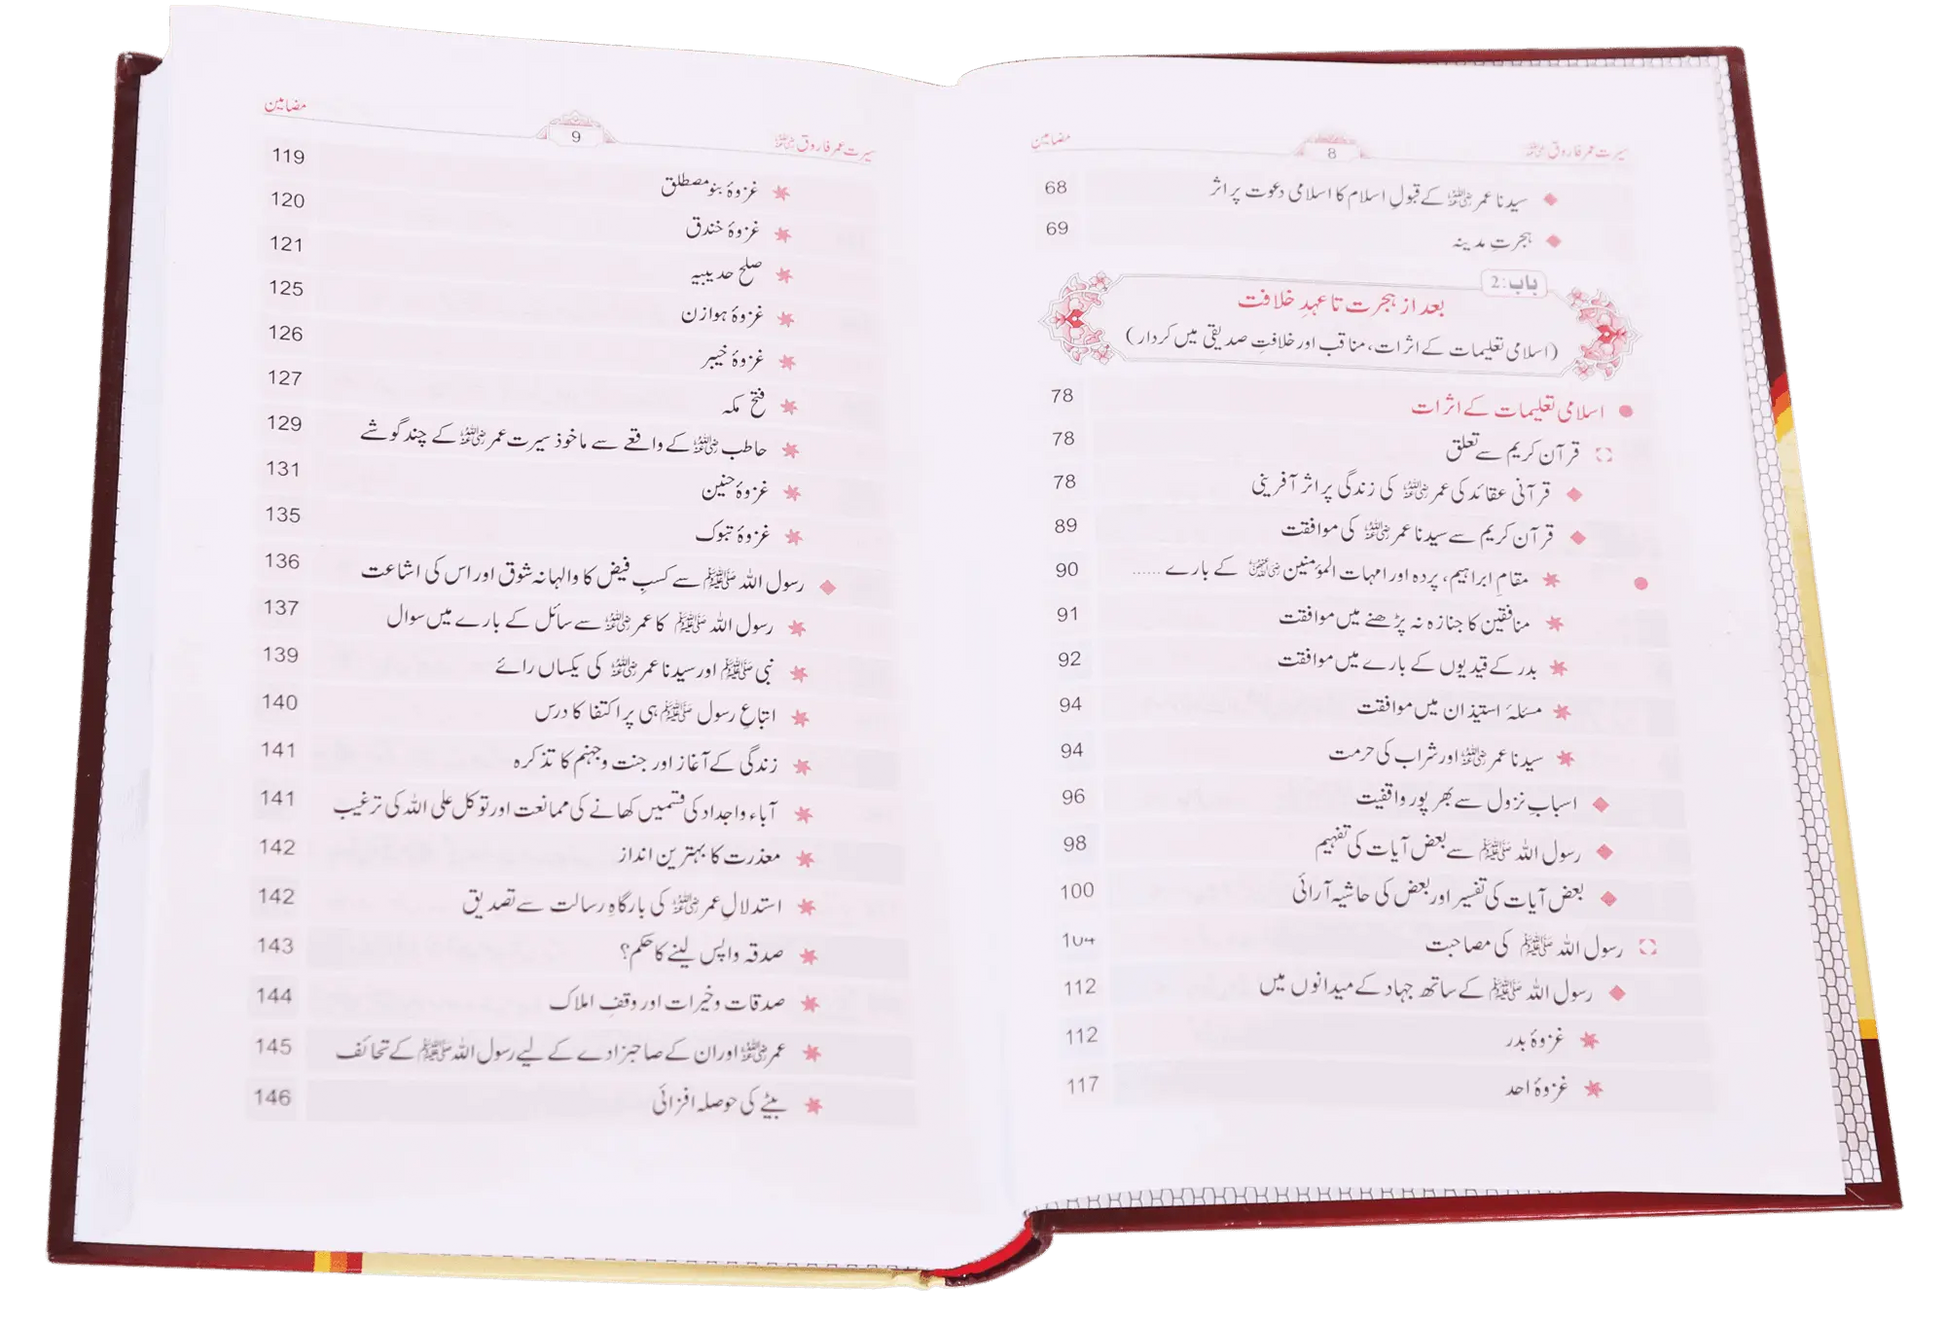 سیرت عمر فاروق رضی اللہ عنہ 8 مضامین
سیدنا عمر رضی اللہ عنہ کے قبولِ اسلام کا اسلامی دعوت پر اثر 68
ہجرتِ مدینہ 69
باب: 2
بعد از ہجرت تا عہدِ خلافت
(اسلامی تعلیمات کے اثرات، مناقب اور خلافتِ صدیقی میں کردار)
اسلامی تعلیمات کے اثرات 78
قرآن کریم سے تعلق 78
قرآنی عقائد کی عمر رضی اللہ عنہ کی زندگی پر اثر آفرینی 78
قرآن کریم سے سیدنا عمر رضی اللہ عنہ کی موافقت 89
مقامِ ابراہیم، پردہ اور امہات المؤمنین رضی اللہ عنہن کے بارے ...... 90
منافقین کا جنازہ نہ پڑھنے میں موافقت 91
بدر کے قیدیوں کے بارے میں موافقت 92
مسئلۂ استیذان میں موافقت 94
سیدنا عمر رضی اللہ عنہ اور شراب کی حرمت 94
اسبابِ نزول سے بھرپور واقفیت 96
رسول اللہ ﷺ سے بعض آیات کی تفہیم 98
بعض آیات کی تفسیر اور بعض کی حاشیہ آرائی 100
رسول اللہ ﷺ کی مصاحبت 104
رسول اللہ ﷺ کے ساتھ جہاد کے میدانوں میں 112
غزوۂ بدر 112
غزوۂ احد 117
سیرت عمر فاروق رضی اللہ عنہ 9 مضامین
غزوۂ بنو مصطلق 119
غزوۂ خندق 120
صلح حدیبیہ 121
غزوۂ ہوازن 125
غزوۂ خیبر 126
فتح مکہ 127
حاطب رضی اللہ عنہ کے واقعے سے ماخوذ سیرت عمر رضی اللہ عنہ کے چند گوشے 129
غزوۂ حنین 131
غزوۂ تبوک 135
رسول اللہ ﷺ سے کسبِ فیض کا والہانہ شوق اور اس کی اشاعت 136
رسول اللہ ﷺ کا عمر رضی اللہ عنہ سے سائل کے بارے میں سوال 137
نبی ﷺ اور سیدنا عمر رضی اللہ عنہ کی یکساں رائے 139
اتباعِ رسول ﷺ ہی پر اکتفا کا درس 140
زندگی کے آغاز اور جنت و جہنم کا تذکرہ 141
آباء و اجداد کی قسمیں کھانے کی ممانعت اور توکل علی اللہ کی ترغیب 141
معذرت کا بہترین انداز 142
استدلالِ عمر رضی اللہ عنہ کی بارگاہِ رسالت سے تصدیق 142
صدقہ واپس لینے کا حکم؟ 143
صدقات و خیرات اور وقفِ املاک 144
عمر رضی اللہ عنہ اور ان کے صاحبزادے کے لیے رسول اللہ ﷺ کے تحائف 145
بیٹے کی حوصلہ افزائی 146